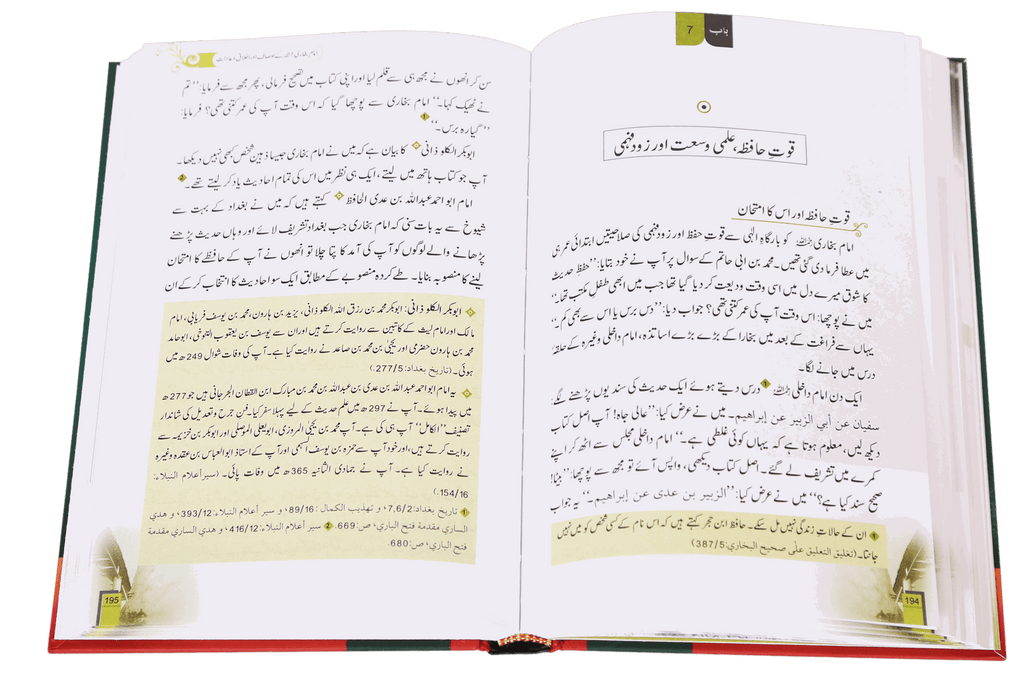 باب 7
قوتِ حافظہ، علمی وسعت اور زود فہمی
قوتِ حافظہ اور اس کا امتحان
امام بخاری رحمہ اللہ کو بارگاہِ الٰہی سے قوتِ حفظ اور زود فہمی کی صلاحیتیں ابتدائی عمر ہی
میں عطا فرما دی گئی تھیں۔ محمد بن ابی حاتم کے سوال پر آپ نے خود بتایا: ”حفظِ حدیث
کا شوق میرے دل میں اسی وقت ودیعت کر دیا گیا تھا جب میں ابھی طفلِ مکتب تھا۔“
میں نے پوچھا: اس وقت آپ کی عمر کتنی تھی؟ جواب دیا: ”دس برس یا اس سے بھی کم۔“
یہاں سے فراغت کے بعد میں بخارا کے بڑے بڑے اساتذہ، امام داخلی وغیرہ کے حلقۂ
درس میں جانے لگا۔
ایک دن امام داخلی رحمہ اللہ 1 درس دیتے ہوئے ایک حدیث کی سند یوں پڑھنے لگے:
سفیان عن أبي الزبير عن إبراهيم۔ میں نے عرض کیا: ”عالی جاہ! آپ اصل کتاب
دیکھ لیں، معلوم ہوتا ہے کہ یہاں کوئی غلطی ہے۔“ امام داخلی مجلس سے اٹھ کر اپنے
کمرے میں تشریف لے گئے۔ اصل کتاب دیکھی، واپس آئے تو مجھ سے پوچھا: ”بیٹا!
صحیح سند کیا ہے؟“ میں نے عرض کیا: ”الزبير بن عدی عن إبراهيم۔“ یہ جواب
1 ان کے حالاتِ زندگی نہیں مل سکے۔ حافظ ابن حجر کہتے ہیں کہ اس نام کے کسی شخص کو میں نہیں
جانتا۔ (تغليق التعليق على صحيح البخاري: 387/5)
194
امام بخاری رحمہ اللہ کے اوصاف اور اخلاق و عادات
سن کر انھوں نے مجھ ہی سے قلم لیا اور اپنی کتاب میں تصحیح فرمالی، پھر مجھ سے فرمایا: ”تم
نے ٹھیک کہا۔“ امام بخاری سے پوچھا گیا کہ اس وقت آپ کی عمر کتنی تھی؟ فرمایا:
”گیارہ برس۔“ 1
ابوبکر الکلوذانی کا بیان ہے کہ میں نے امام بخاری جیسا ذہین شخص کبھی نہیں دیکھا۔
آپ جو کتاب ہاتھ میں لیتے، ایک ہی نظر میں اس کی تمام احادیث یاد کر لیتے تھے۔ 2
امام ابو احمد عبداللہ بن عدی الحافظ کہتے ہیں کہ میں نے بغداد کے بہت سے
شیوخ سے یہ بات سنی کہ امام بخاری جب بغداد تشریف لائے اور وہاں حدیث پڑھنے
پڑھانے والے لوگوں کو آپ کی آمد کا پتا چلا تو انھوں نے آپ کے حافظے کا امتحان
لینے کا منصوبہ بنایا۔ طے کردہ منصوبے کے مطابق ایک سو احادیث کا انتخاب کر کے ان
ابوبکر الکلوذانی: ابوبکر محمد بن رزق اللہ الکلوذانی، یزید بن ہارون، محمد بن یوسف فریابی، امام
مالک اور امام لیث کے کاتبین سے روایت کرتے ہیں اور ان سے یوسف بن یعقوب التنوخی، ابو حامد
محمد بن ہارون حضرمی اور یحییٰ بن محمد بن صاعد نے روایت کیا ہے۔ آپ کی وفات شوال 249ھ میں
ہوئی۔ (تاریخ بغداد: 277/5.)
یہ امام ابو احمد عبداللہ بن عدی بن عبداللہ بن محمد بن مبارک ابن القطان الجرجانی ہیں جو 277ھ
میں پیدا ہوئے۔ آپ نے 297ھ میں علم حدیث کے لیے پہلا سفر کیا۔ فنِ جرح و تعدیل کی شاندار
تصنیف ”الکامل“ آپ ہی کی ہے۔ آپ محمد بن یحییٰ المروزی، ابو یعلی الموصلی اور ابوبکر بن خزیمہ سے
روایت کرتے ہیں، اور خود آپ سے حمزہ بن یوسف السہمی اور آپ کے استاذ ابو العباس بن عقدہ وغیرہ
نے روایت کیا ہے۔ آپ نے جمادی الثانیہ 365ھ میں وفات پائی۔ (سیر أعلام النبلاء:
154/16.)
1 تاریخ بغداد: 7,6/2، و تهذيب الكمال: 89/16، و سير أعلام النبلاء: 393/12، و هدي
الساري مقدمة فتح الباري، ص: 669. 2 سير أعلام النبلاء: 416/12، و هدي الساري مقدمة
فتح الباري، ص: 680.
195